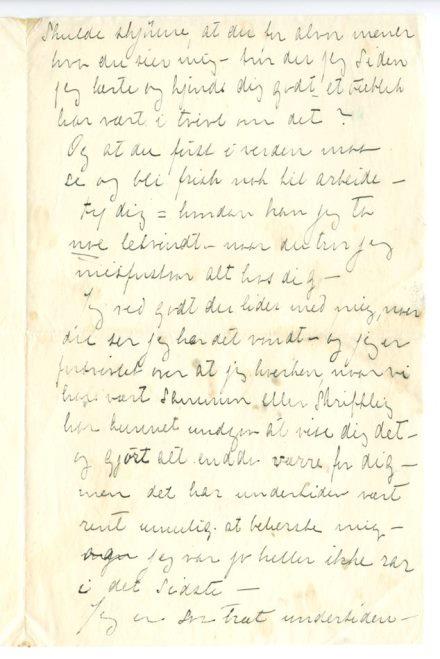 Skulde skjønne, at du for alvor mener
hvad du sier mig – tror du, jeg siden
jeg lærte og kjende dig godt, et øieblik
har vært i tvivl om det?
Og at du først i verden maa
se og bli frisk nok til arbeide –
Ty dig = hvordan kan jeg ta
noe letvindt – naar du tror jeg
misforstaar alt hos dig –
Jeg ved godt du lider med mig, naar
du ser jeg har det vondt – og jeg er
fortvilet over at jeg hverken, naar vi
har vært sammen eller skriftlig
har kunnet undgaa at vise dig det –
og gjort alt endda værre for dig –
men det har undertiden vært
rent umulig at beherske mig –
jeg var jo heller ikke rar
i det sidste –
Jeg er saa træt undertiden –